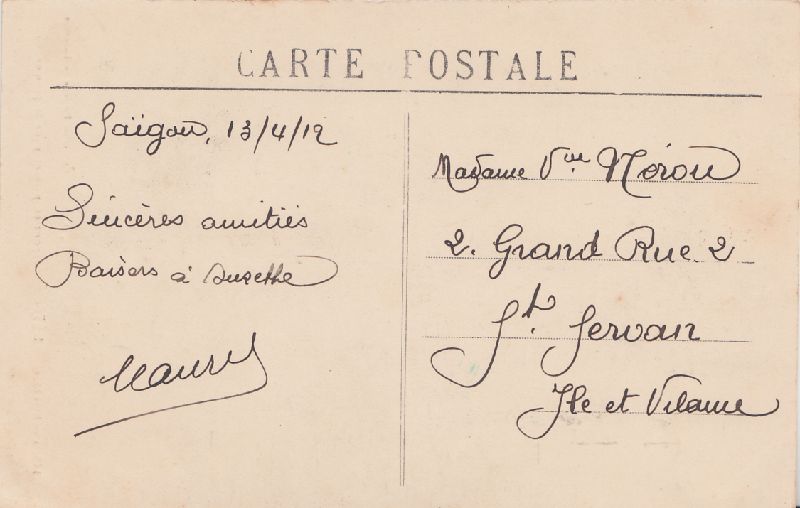 CARTE POSTALE
Saïgon, 13/4/12
Sincères amitiés
Baisers à Suzette
Madame Vve Néron
2. Grand Rue 2
St. Servan
Ile et Vilaine